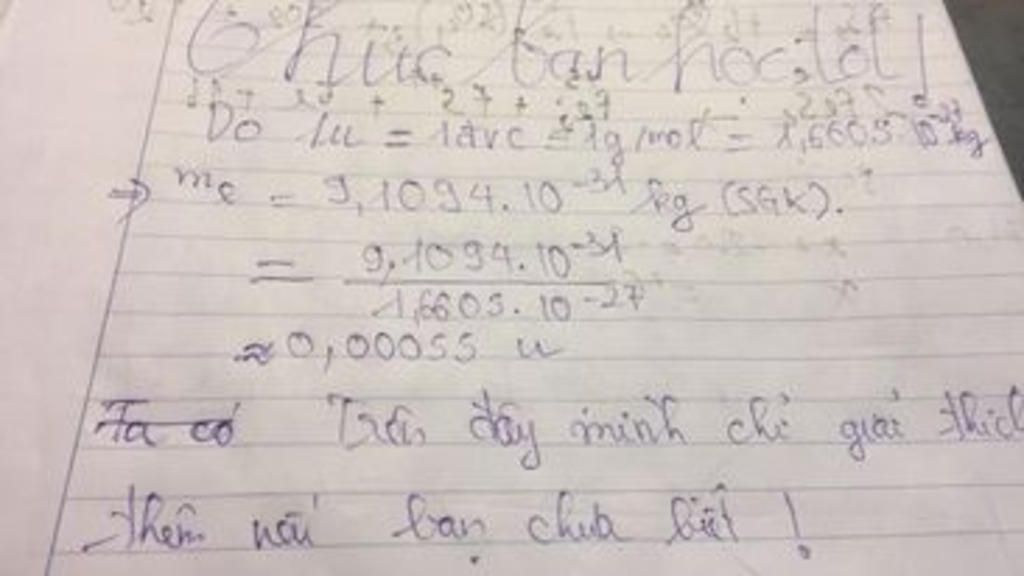 Chúc bạn học tốt!
Do 1u = 1đvc = 1g/mol = 1,6605 10⁻²⁷ kg
→ mₑ = 9,1094.10⁻³¹ kg (SGK).
= 9,1094.10⁻³¹
1,6605.10⁻²⁷
≈ 0,00055 u
Ta có Trên đây mình chỉ giải thích
thêm nếu bạn chưa biết !